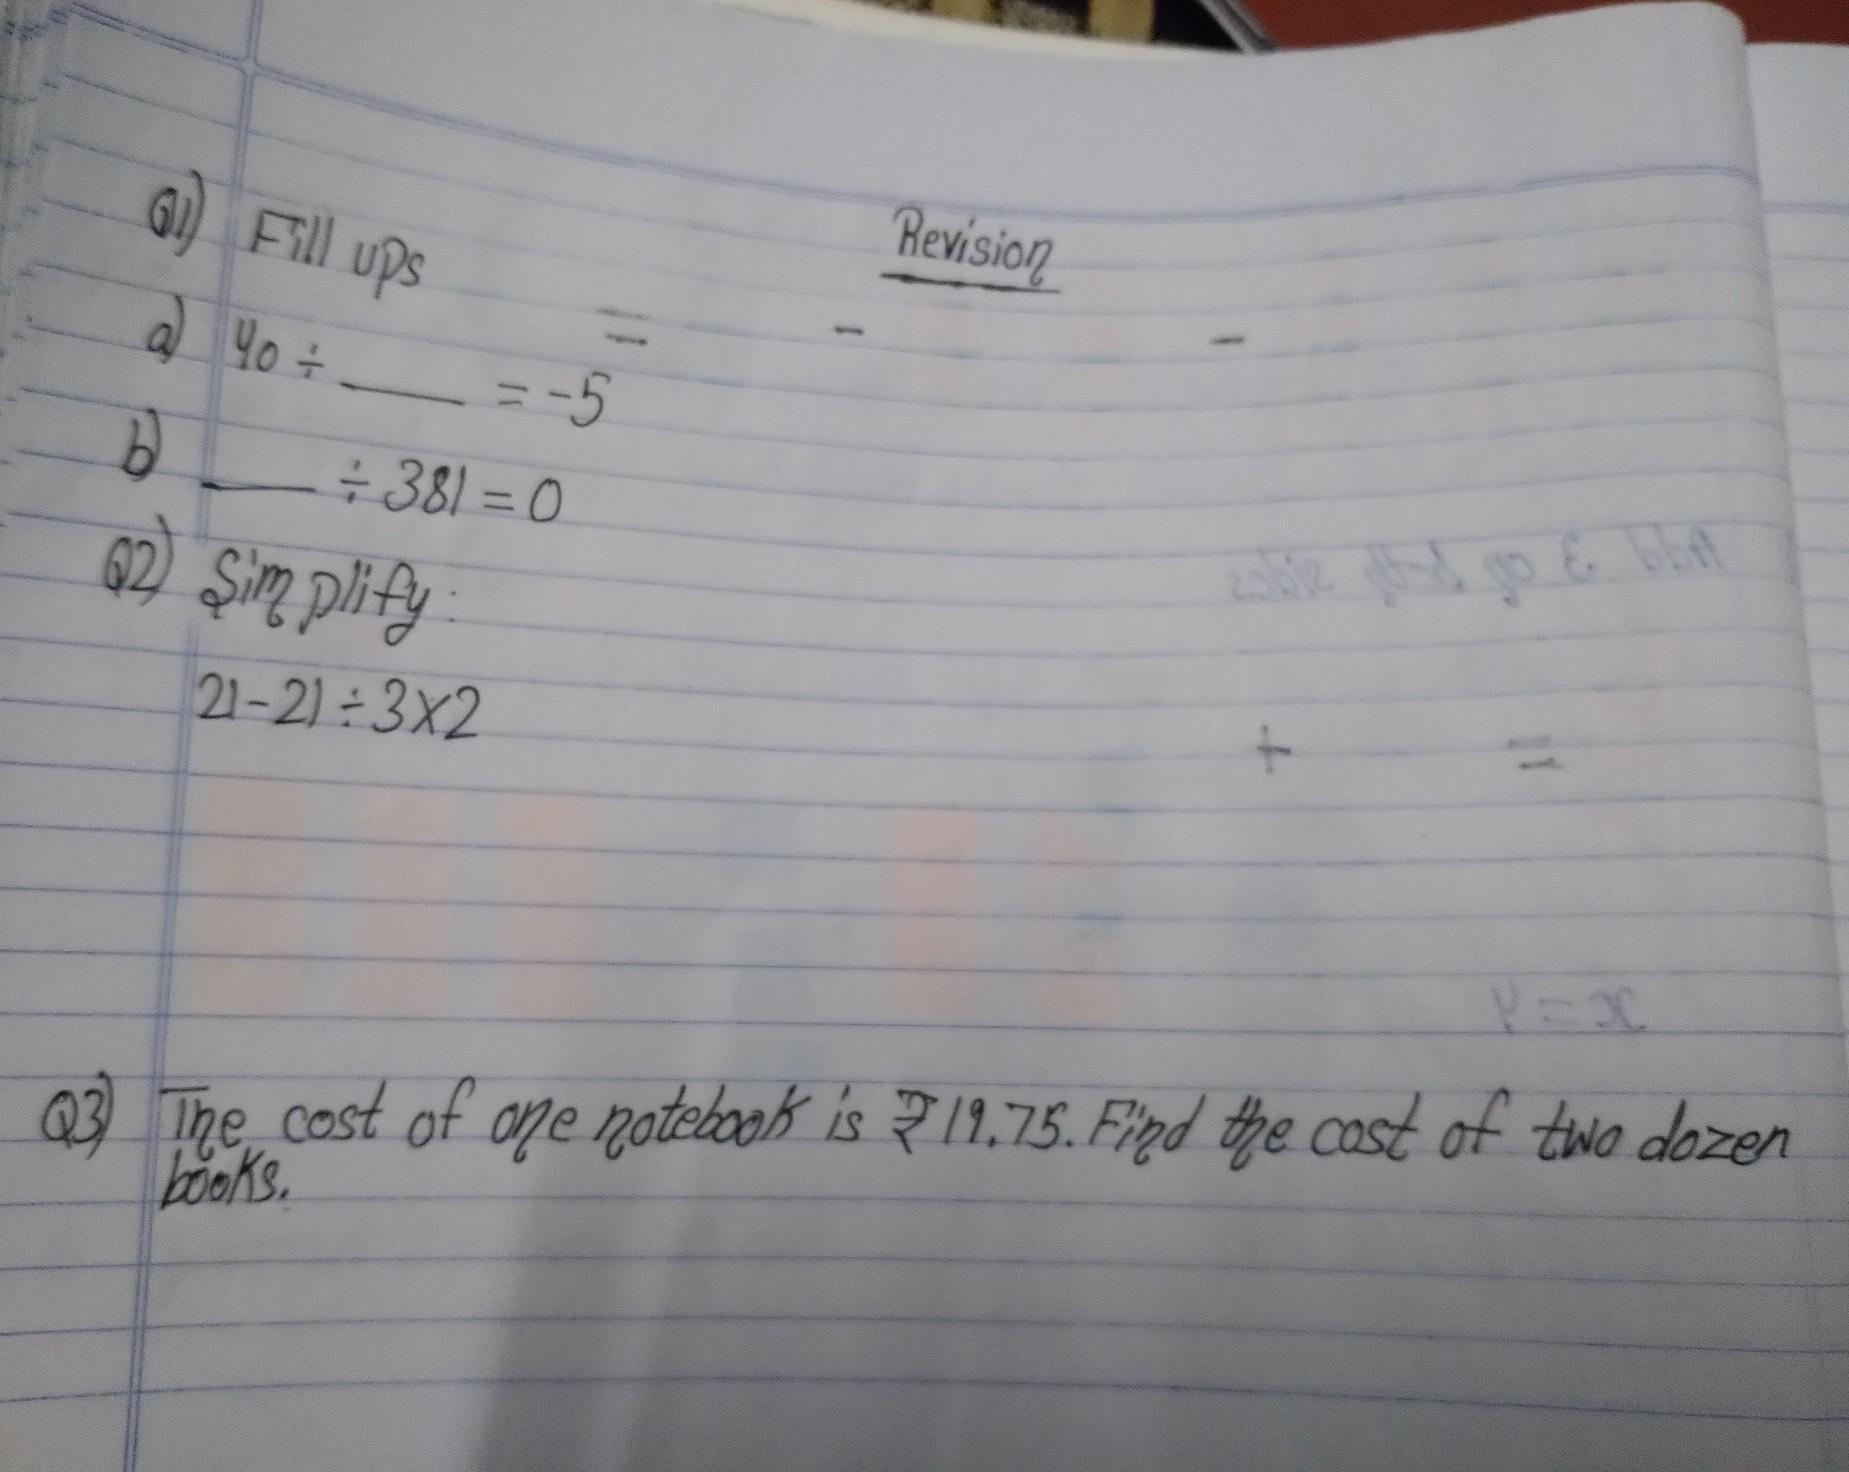 Revision
Q1) Fill ups
= - -
a) 40 ÷ ____ = -5
b) ____ ÷ 381 = 0
Q2) Simplify:
Add 3 on both sides
21-21÷3×2
+ =
x=4
Q3) The cost of one notebook is ₹19.75. Find the cost of two dozen
books.